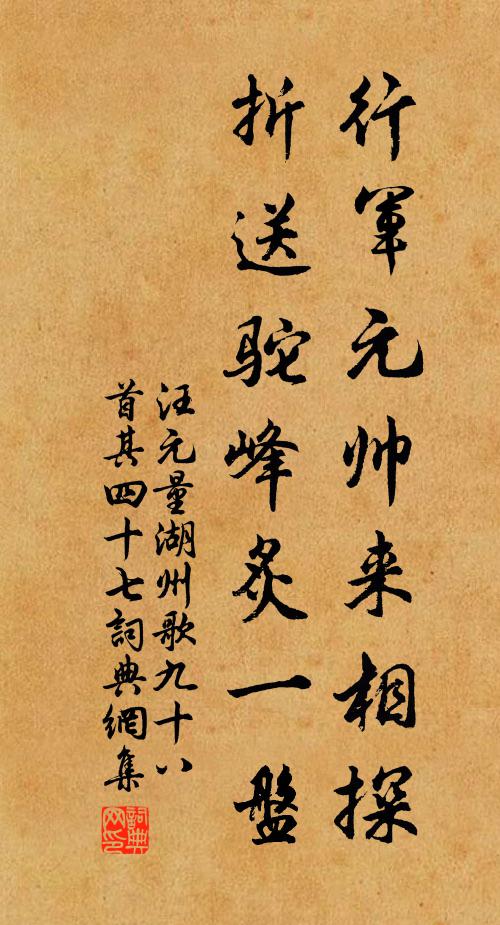 行軍元帅来相探
折送駝峰炙一盤
汪元量湖州歌九十八
首其四十七詞典網集
詞典
网印